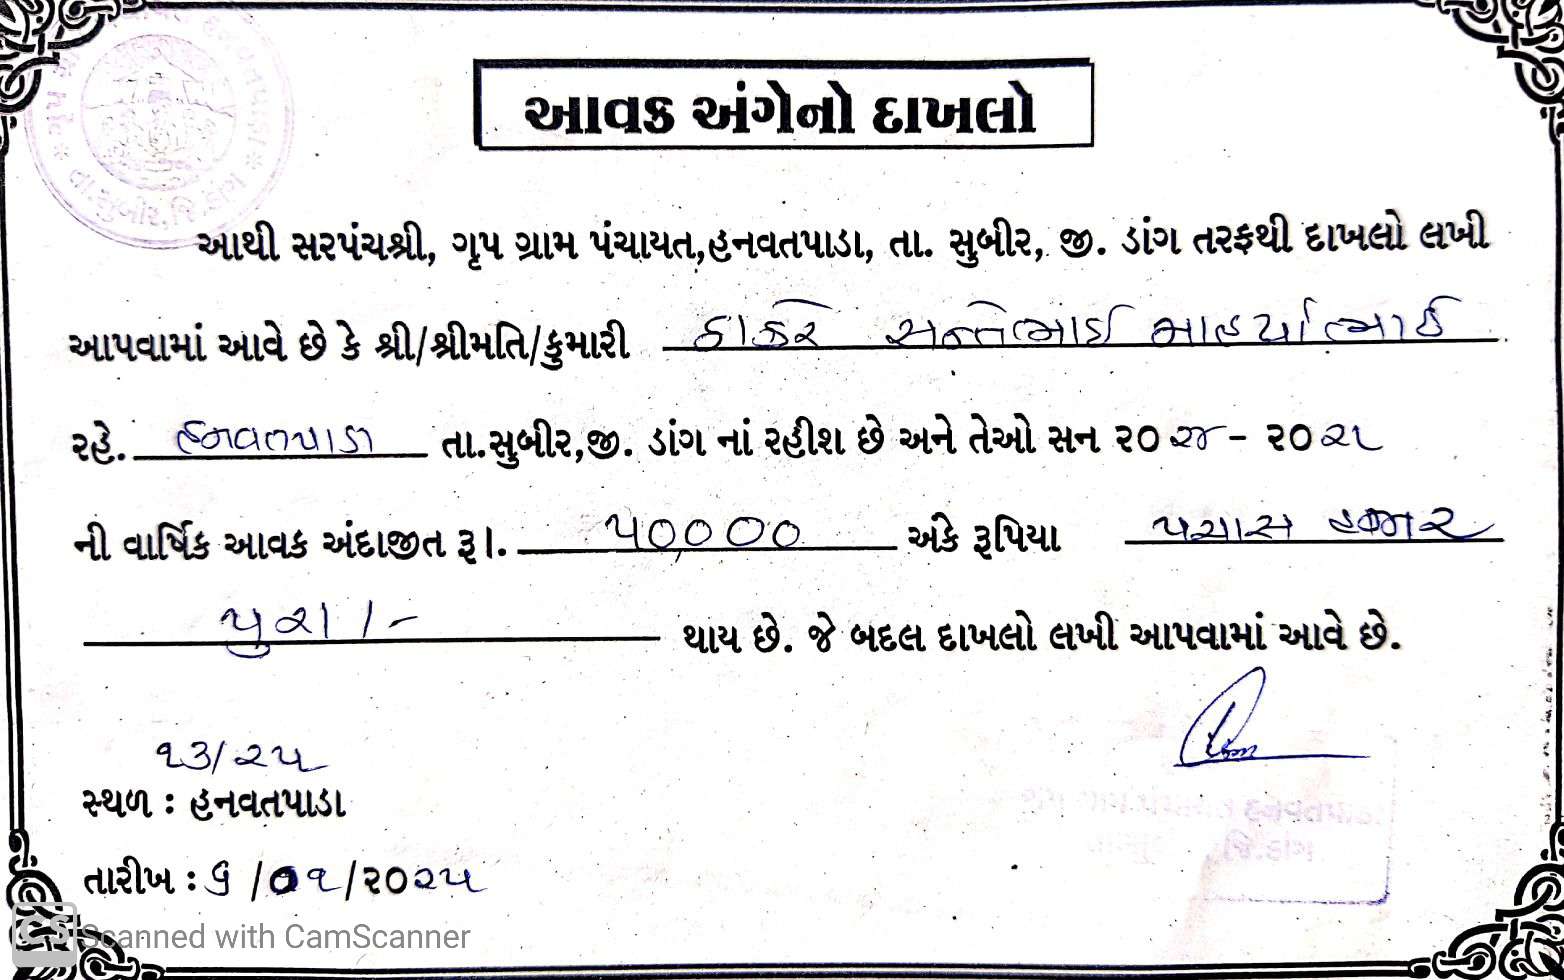 આવક અંગેનો દાખલો
આથી સરપંચશ્રી, ગૃપ ગ્રામ પંચાયત,હનવતપાડા, તા. સુબીર, જી. ડાંગ તરફથી દાખલો લખી
આપવામાં આવે છે કે શ્રી/શ્રીમતિ/કુમારી ઠાકરે
રહે. હનવતપાડા તા.સુબીર,જી. ડાંગ નાં રહીશ છે અને તેઓ સન ૨૦૨૪ - ૨૦૨૫
ની વાર્ષિક આવક અંદાજીત રૂા. ૫૦,૦૦૦ અંકે રૂપિયા પચાસ હજાર
પુરા /- થાય છે. જે બદલ દાખલો લખી આપવામાં આવે છે.
૧૩/૨૫
સ્થળ : હનવતપાડા
તારીખ : ૬ /૦૧/૨૦૨૫
CS Scanned with CamScanner